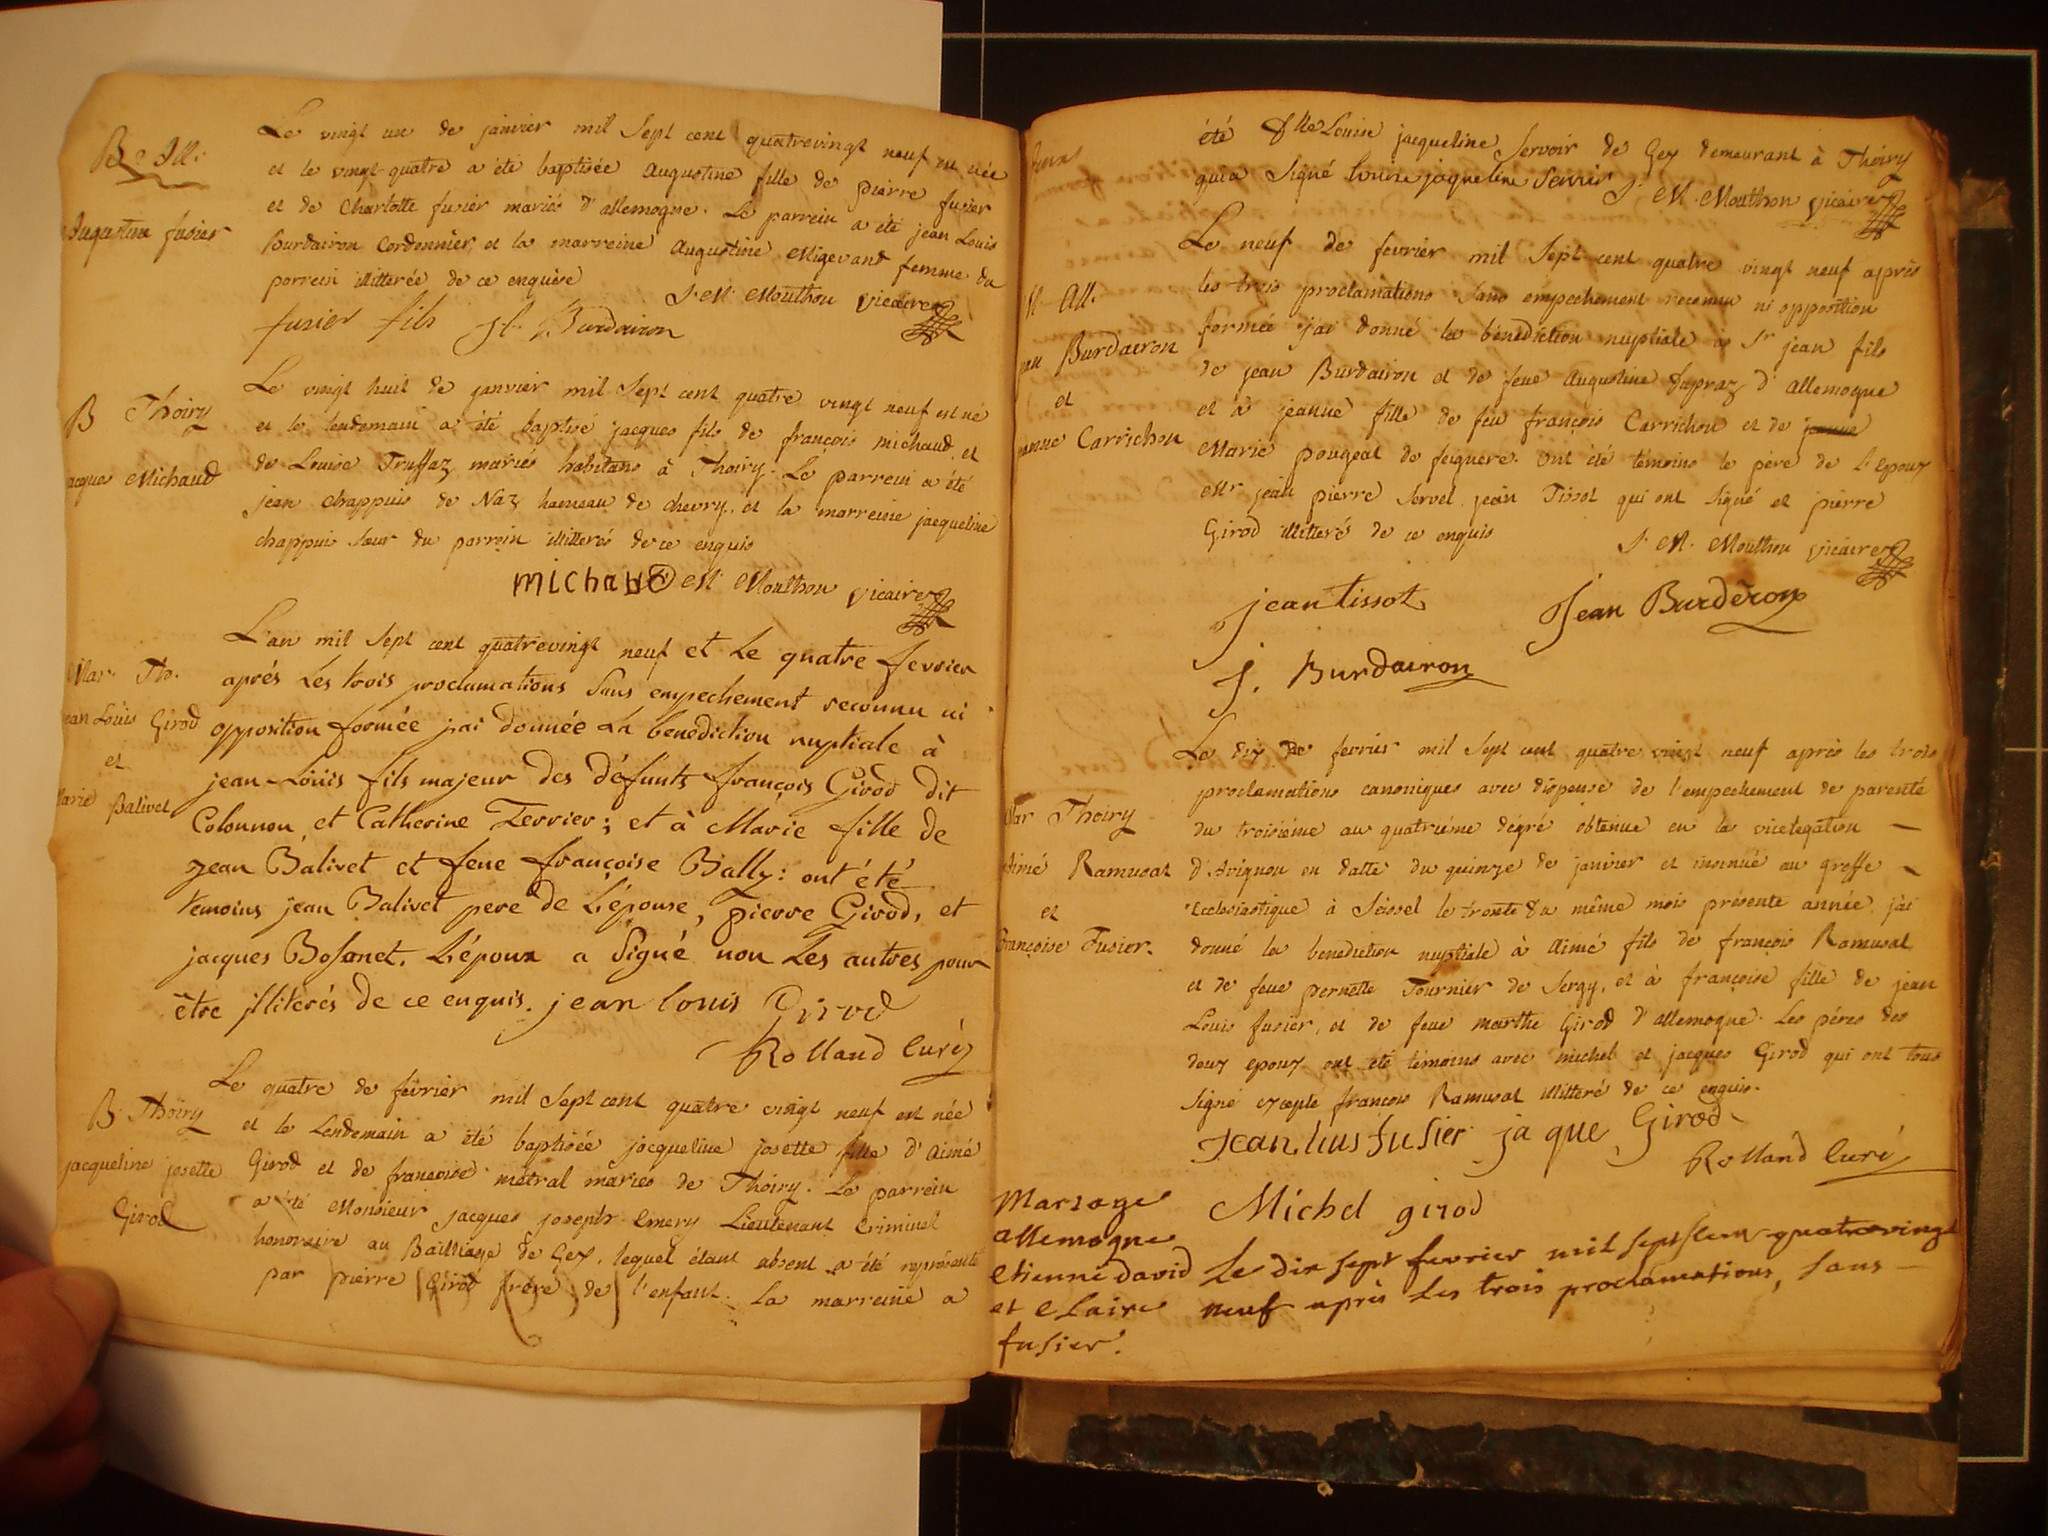 B. All.
Augustine fusier
Le vingt un de janvier mil Sept cent quatrevingt neuf est née
et le vingt-quatre a été baptisée Augustine fille de pierre fusier
et de Charlotte fusier mariés d'allemogne. Le parrein a été jean Louis
Burdairon Cordonnier, et la marreine Augustine Migerand femme du
parrein illitterée de ce enquise
J. M. Mouthon vicaire
fusier fils J L Burdairon
B Thoiry
jacques Michaud
Le vingt huit de janvier mil Sept cent quatre vingt neuf est né
et le lendemain a été baptisé jacques fils de françois michaud, et
de Louise Truffaz mariés habitans à Thoiry. Le parrein a été
jean chappuis de Naz hameau de chevry, et la marreine jacqueline
chappuis Sœur du parrein illitterés de ce enquis
michaud J. M. Mouthon vicaire
Mar. Tho.
jean Louis Girod
et
Marie Balivet
L'an mil Sept cent quatrevingt neuf et Le quatre fevrier
après Les trois proclamations Sans empechement reconnu ni
opposition formée jai donnée La benediction nuptiale à
jean-Louis fils majeur des défunts françois Girod dit
Colonnou, et Catherine Terrier; et à Marie fille de
Jean Balivet et feue françoise Bally: ont été
temoins jean Balivet pere de L'épouse, pierre Girod, et
jacques Bosonet. L'époux a Signé non Les autres pour
être illiterés de ce enquis. jean louis Girod
Rolland Curé
B. Thoiry
jacqueline josette
Girod
Le quatre de fevrier mil Sept cent quatre vingt neuf est née
et le Lendemain a été baptisée jacqueline josette fille d'Aimé
Girod et de francoise métral mariés de Thoiry. Le parrein
a été Monsieur jacques joseph Emery Lieutenant Criminel
honoraire au Bailliage de Gex, lequel étant absent a été représenté
par pierre Girod frère de l'enfant. La marreine a
été Dlle Louise jacqueline Servoir de Gex demeurant à Thoiry
qui a Signé Louise jaqueline Servoir J. M. Mouthon vicaire
M. All.
jean Burdairon
et
jeanne Carrichon
Le neuf de fevrier mil Sept cent quatre vingt neuf après
les trois proclamations Sans empechement reconnu ni opposition
formée jai donné la bénédiction nuptiale à Sr jean fils
de jean Burdairon et de feue Augustine Dupraz d'allemogne
et à jeanne fille de feu françois Carrichon et de jeanne
Marie pougeat de feignere. Ont été témoins le père de l'Epoux
Mr jean pierre Servet, jean Tissot qui ont Signé et pierre
Girod illitteré de ce enquis
J. M. Mouthon vicaire
jean tissot Jean Burdèron
J. Burdairon
Mar Thoiry
Aimé Ramusat
et
françoise Fusier.
Le dix de fevrier mil Sept cent quatre vingt neuf après les trois
proclamations canoniques avec dispense de l'empechement de parenté
du troisième au quatrième dégré obtenue en la vicelegation
d'Avignon en datte du quinze de janvier et insinué au greffe
Ecclesiastique à Seissel le trente du même mois présente année, j'ai
donné la bénédiction nuptiale à Aimé fils de françois Ramusat
et de feue pernette Tournier de Sergy, et à françoise fille de jean
Louis fusier, et de feue marthe Girod d'allemogne. Les pères des
deux epoux ont été témoins avec michel et jacques Girod qui ont tous
Signé excepté françois Ramusat illitteré de ce enquis.
Jean luis fusier jaque Girod
Rolland Curé
Michel girod
Mariage
allemogne
etienne david
et Claire
fusier.
Le dix sept fevrier mil sept cent quatrevingt
neuf après les trois proclamations, sans